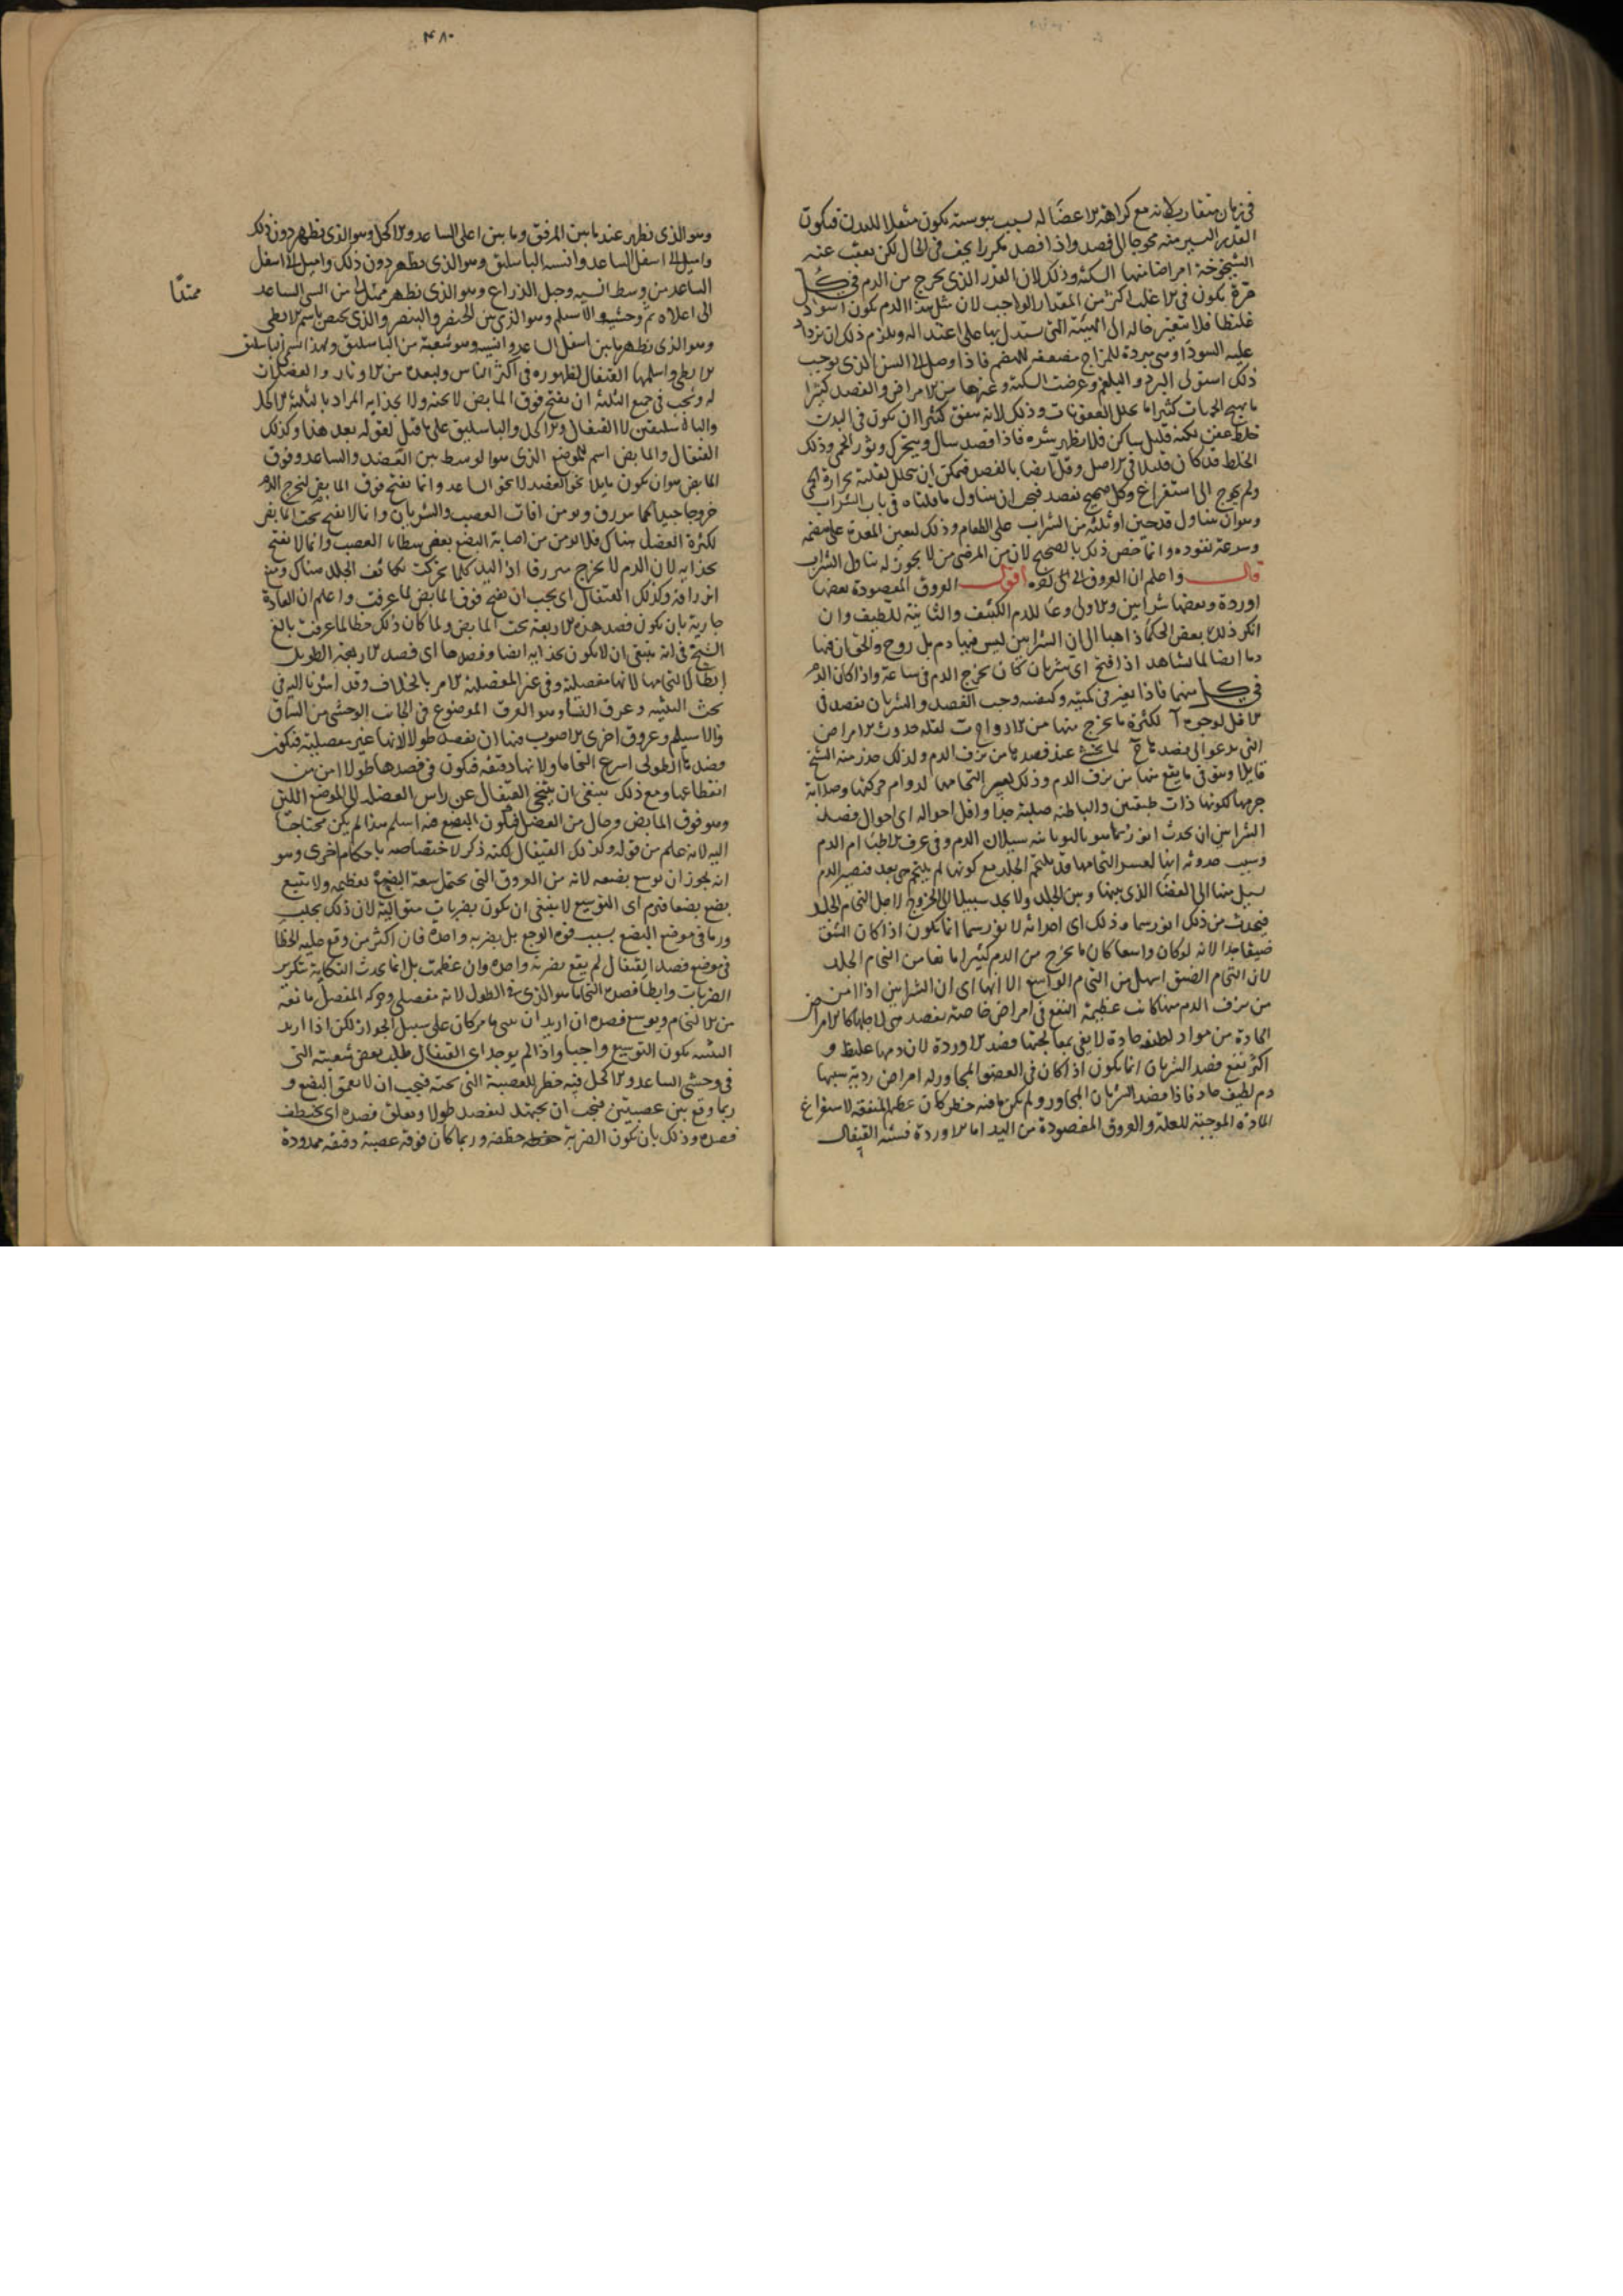 في زمان متقارب لانه مع كراهة الاعضا له بسبب يبوسته يكون مثقلا للبدن فيكون
القدر اليسير منه محوجا الى فصد واذا فصد مكررا يخف في الحال لكن يعقب عند
الشيخوخة امراضا منها السكتة وذلك لان القدر الذي يخرج من الدم في كل
مرة يكون في الاغلب اكثر من المقدار الواجب لان مثل هذا الدم يكون اسود
غليظا فلا يتغير حاله الى الهيئة التي يستدل بها على اعتداله ويلزم ذلك ان يزداد
عليه السودا وهي مبردة للمزاج مضعفة للهضم فاذا وصل الى السن الذي يوجب
ذلك استولى البرد والبلغم وعرضت السكتة وغيرها من الامراض والفصد كثيرا
ما يهيج الحميات كثيرا ما يحلل العفونات وذلك لانه يتفق كثيرا ان يكون في البدن
خلط عفن لكنه قليل ساكن فلا يظهر شره فاذا فصد سال ويتحرك وثور الحمى وذلك
الخلط قد كان قليلا في الاصل وقل ايضا بالفصد فيمكن ان يتحلل بقلته بحرارة الحمى
ولم يحوج الى استفراغ وكل صحيح يفصد فيجب ان يتناول ما قلناه في باب الشراب
وهو ان يتناول قدحين او ثلثة من الشراب على الطعام وذلك ليعين المعدة على هضمه
وسرعة نفوذه وانما خص ذلك بالصحيح لان من المرضى من لا يجوز له تناول الشراب
قال واعلم ان العروق الى اخره اقول العروق المفصودة بعضها
اوردة وبعضها شرايين والاولى وعا للدم الكثيف والثانية للطيف وان
انكر ذلك بعض الحكما ذاهبا الى ان الشرايين ليس فيها دم بل روح والحق ان فيها
دما ايضا لما يشاهد اذا فتح اي شريان كان يخرج الدم في ساعة واذا كان الدم
في كل منهما فاذا تغير في كميته وكيفيته وجب الفصد والشريان يفصد في
الاقل لوجوه آ لكثرة ما يخرج منها من الارواح ب لقلة حدوث الامراض
التي يدعو الى فصدها ج لما يخشى عند فصدها من نزف الدم ولذلك حذر منه الشيخ
قايلا ويتوقى ما يقع منها من نزف الدم وذلك لعسر التحامها لدوام حركتها وصلابة
جرمها لكونها ذات طبقتين والباطنة صلبة جدا واقل احواله اي احوال فصد
الشرايين ان يحدث انورسما هو باليونانية سيلان الدم وفي عرف الاطبا ام الدم
وسبب حدوثه ايضا لعسر التحامها قد يلتحم الجلد مع كونها لم يلتحم هي بعد فيصير الدم
يسيل منها الى الفضا الذي بينها وبين الجلد ولا يجد سبيلا الى الخروج لاجل التحام الجلد
فيحدث من ذلك انورسما وذلك اي احداثه لانورسما انما يكون اذا كان الشق
ضيقا جدا لانه لو كان واسعا كان ما يخرج من الدم كثيرا مانعا من التحام الجلد
لان التحام الضيق اسهل من التحام الواسع الا انها اي ان الشرايين اذا امن
من نزف الدم منها كانت عظيمة النفع في امراض خاصة يفصد هي لاجلها كالامراض
الحادة من مواد لطيفة حادة لا يفي بمعالجتها فصد الاوردة لان دمها غليظ و
اكثر نفع فصد الشريان انما يكون اذا كان في العضو المجاور له امراض ردية سببها
دم لطيف حاد فاذا فصد الشريان المجاور ولم يكن مما فيه خطر كان عظيم المنفعة لاستفراغ
المادة الموجبة للعلة والعروق المفصودة من اليد اما الاوردة فستة القيفال
۴۸۰
وهو الذي يظهر عند مابين المرفق وما بين اعلى الساعد والاكحل وهو الذي يظهر دون ذلك
واميل الى اسفل الساعد وانسيه الباسليق وهو الذي يظهر دون ذلك واميل الى اسفل
الساعد من وسط انسيه وحبل الذراع وهو الذي يظهر ممتدا من انسي الساعد
ممتدا
الى اعلاه ثم وحشيه والاسيلم وهو الذي بين الخنصر والبنصر والذي يختص باسم الابطي
وهو الذي يظهر مابين اسفل الساعد وانسيه وهو شعبة من الباسليق ولهذا سمي باسليق
الابطي واسلمها القيفال لظهوره في اكثر الناس ولبعده من الاوتار والعضلات
له ويجب في جميع الثلثة ان يفتح فوق المابض لا تحته ولا بحذايه المراد بالثلثة الاكحل
والباسليقين لا القيفال والاكحل والباسليق على ما قيل لقوله بعد هذا وكذلك
القيفال والمابض اسم للموضع الذي هو الوسط بين العضد والساعد وفوق
المابض هو ان يكون مايلا نحو العضد لا نحو الساعد وانما يفتح فوق المابض ليخرج الدم
خروجا جيدا كما يزرق ويومن افات العصب والشريان وانما لا يفتح تحت المابض
لكثرة العضل هناك فلا يومن من اصابة المبضع بعض شظايا العصب وانما لا يفتح
بحذايه لان الدم لا يخرج منزرقا اذ اليد كلما تحركت تكاثف الجلد هناك ومنع
انزراقه وكذلك القيفال اي يجب ان يفتح فوق المابض لما عرفت واعلم ان العادة
جارية بان يكون فصد هذه الاربعة تحت المابض ولما كان ذلك خطا لما عرفت بالغ
الشيخ في انه ينبغي ان لا يكون بحذايه ايضا وفصدها اي فصد الاربعة الطويل
ابطا لالتحامها لانها مفصلية وفي غير المفصلية الامر بالخلاف وقد اشرنا اليه في
بحث التثنية وعرق النسا وهو العرق الموضوع في الجانب الوحشي من الساق
والاسيلم وعروق اخرى الاصوب فيها ان يفصد طولا لانها غير مفصلية فيكون
فصدها الطولي اسرع التحاما ولانها دقيقة فيكون في فصدها طولا امن من
انقطاعها ومع ذلك ينبغي ان يتنحى القيفال عن راس العضلة الى الموضع اللين
وهو فوق المابض وخال من العضل فيكون المبضع فيه اسلم هذا لم يكن محتاجا
اليه لانه علم من قوله وكذلك القيفال لكنه ذكر لاختصاصه باحكام اخرى وهو
انه يجوز ان يوسع بضعه لانه من العروق التي يحتمل سعة البضع لعظمه ولا يتبع
بضع بضعا فيرم اي التوسيع لا ينبغي ان يكون بضربات متوالية لان ذلك يجلب
ورما في موضع البضع بسبب قوة الوجع بل بضربة واحدة فان اكثر من وقع عليه الخطا
في موضع فصد القيفال لم يقع بضربة واحدة وان عظمت بل انما يحدث النكاية بتكرير
الضربات وابطا فصده التحاما هو الذي في الطول لانه مفصلي وحركة المفصل مانعة
من الالتحام ويوسع فصده ان اريد ان يثني مامر كان على سبيل الجواز لكن اذا اريد
التثنية يكون التوسيع واجبا واذا لم يوجد اي القيفال طلب بعض شعبه التي
في وحشي الساعد والاكحل فيه خطر للعصبة التي تحته فيجب ان لا يعمق المبضع و
ربما وقع بين عصبتين فيجب ان يجتهد ليفصد طولا ويعلق فصده اي يختطف
فصده وذلك بان يكون الضربة خطفة وربما كان فوقه عصبة دقيقة ممدودة